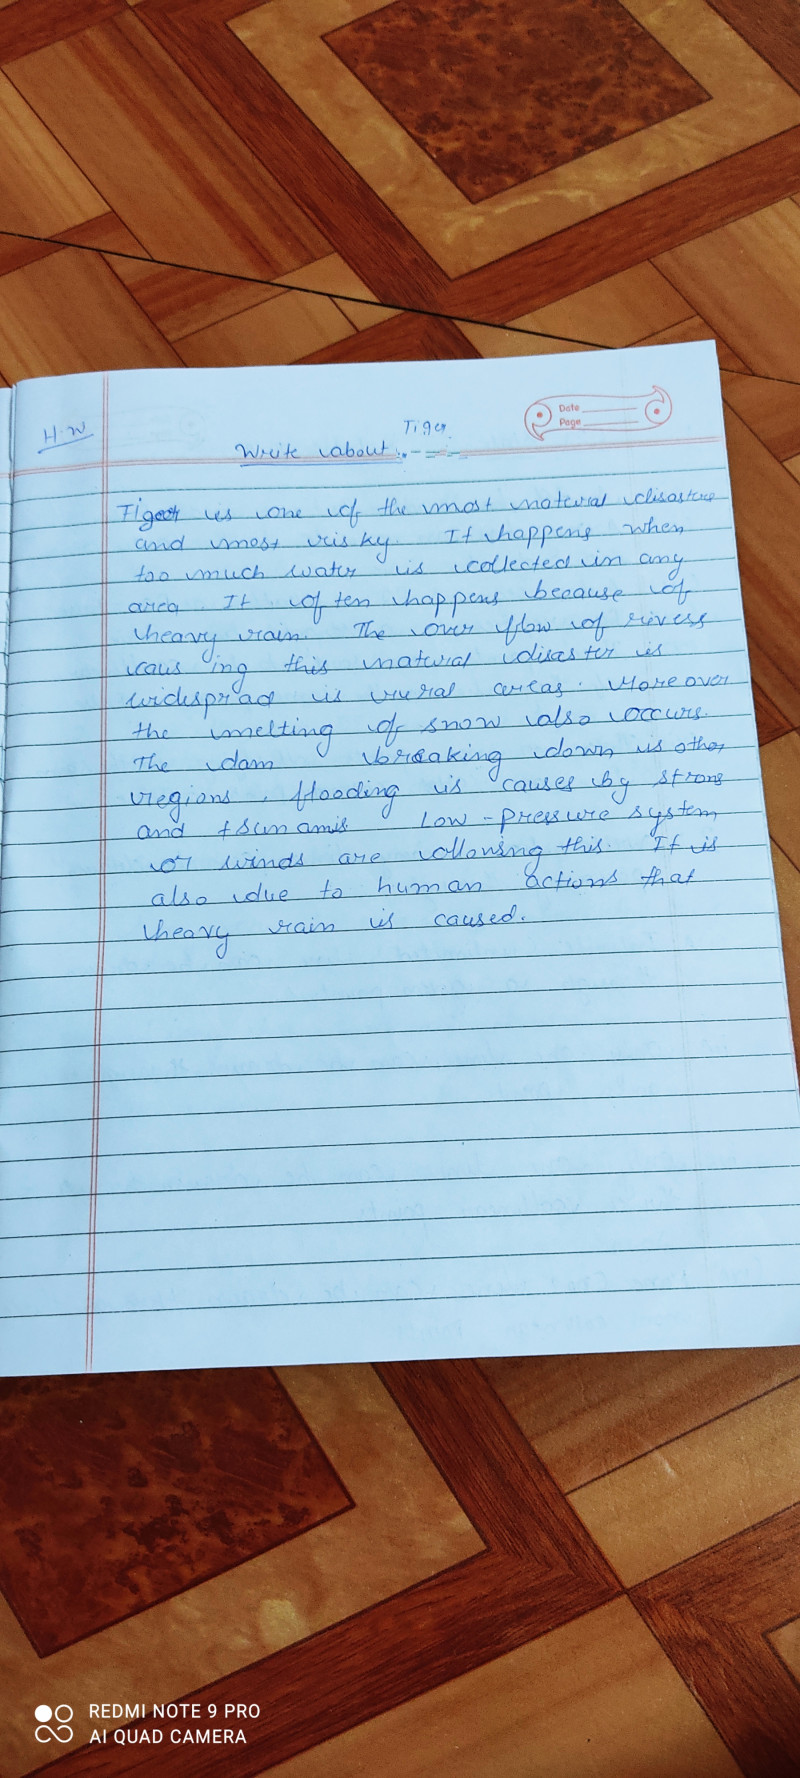 H.W
Tiger
Date
Page
Write about :-
Tiger is one of the most natural disasture
and most risky. It happens when
too much water is collected in any
area. It often happens because of
heavy rain. The over flow of rivess
caus ing this natural disaster is
widesprad is rural areas. More over
the melting of snow also occurs.
The dam breaking down is other
regions, flooding is causes by strong
and tsunamis Low-pressure system
or winds are collowing this. It is
also due to human actions that
heavy rain is caused.
REDMI NOTE 9 PRO
AI QUAD CAMERA